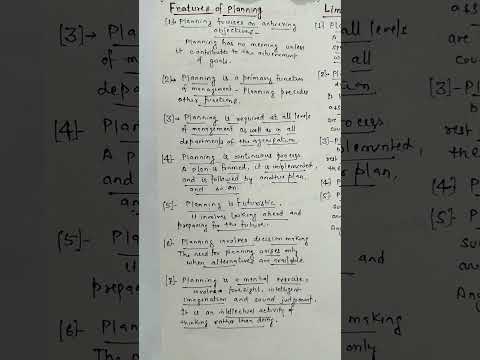 Features of Planning
[1]- Planning focuses on achieving
objectives-
Planning has no meaning unless
it contributes to the achievement
of goals.
[2]→ Planning is a primary function
of management - Planning precedes
other functions.
[3]→ Planning is required at all levels
of management as well as in all
departments of the organisation.
[4]- Planning is continuous process
A plan is formed, it is implemented,
and is followed by another plan,
and so on.
[5]- Planning is futuristic.
It involves looking ahead and
preparing for the future.
[6]- Planning involves decision making
The need for planning arises only
when alternatives are available.
[7]- Planning is a mental exercise
involves foresight, intelligent
imagination and sound judgment.
It is an intellectual activity of
thinking rather than doing.
Lim
[1]
[2]-
[3]-
[4]
[5]
[3]→ Plann
of manage
depart
[4]- Plan
A pl
and
an
[5]- Pla
it
prepa
[6]- Plan
The n
all levels
all
process
implemented,
plan,
are
[3]-
rest
the
[4]
[5]
making
only